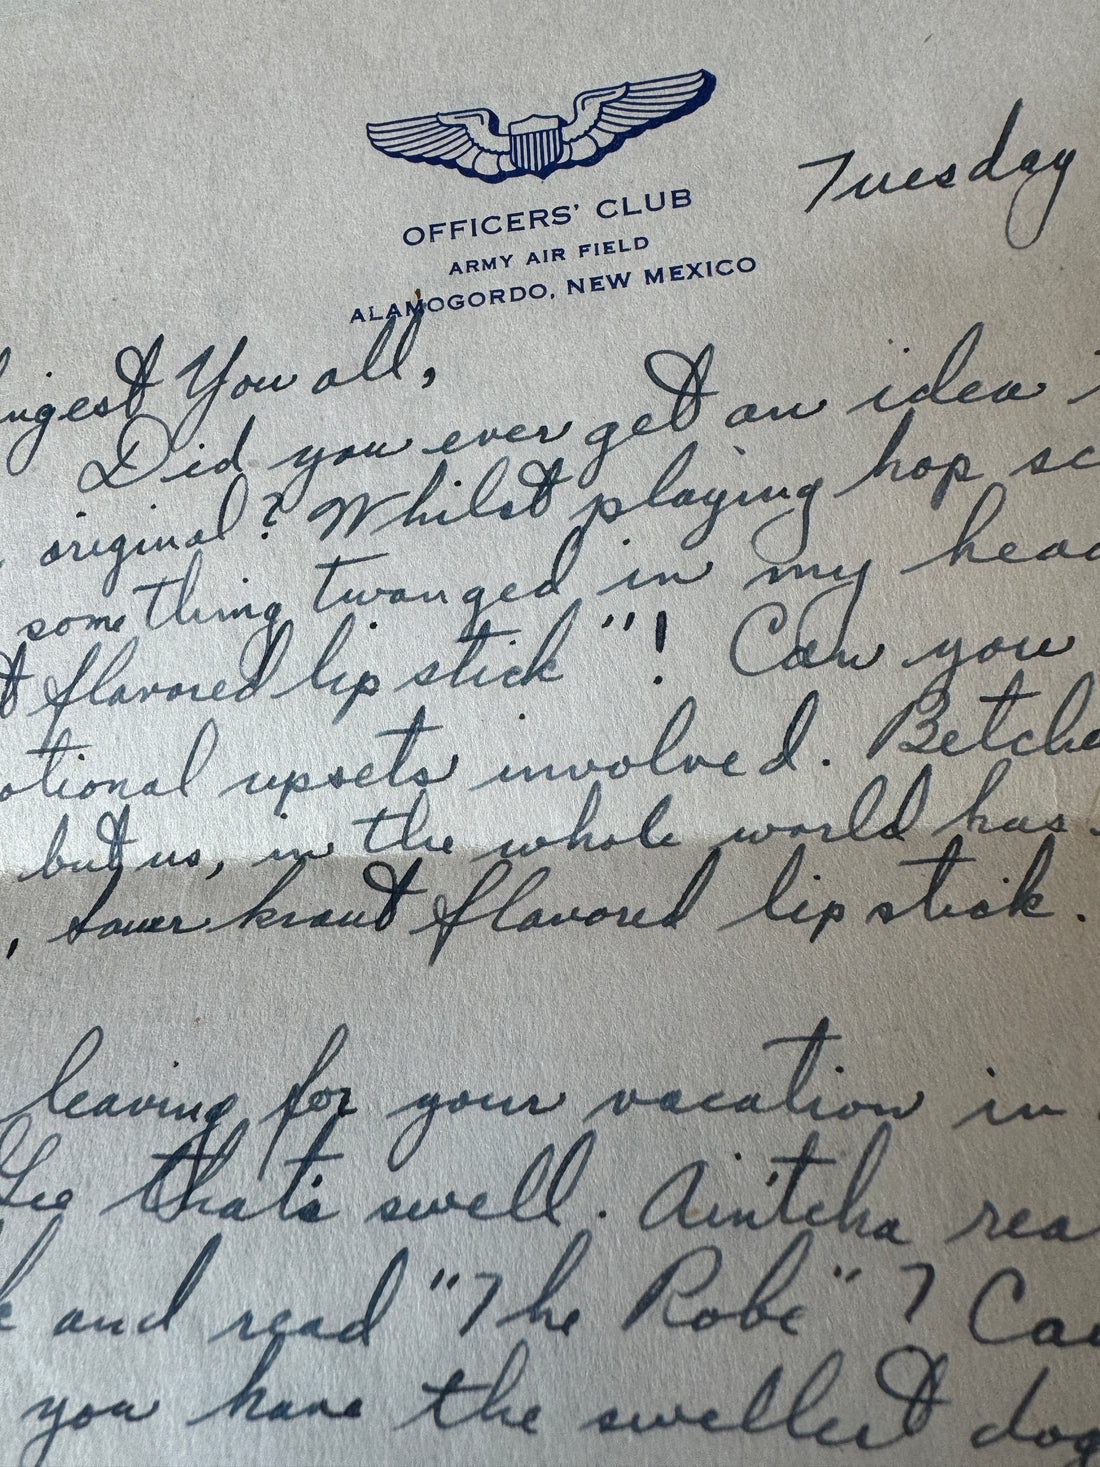 OFFICERS' CLUB
ARMY AIR FIELD
ALAMOGORDO, NEW MEXICO
Tuesday
ngest You all,
Did you ever get an idea
original? Whilst playing hop sc
something twanged in my head
t flavored lip stick"! Can you
otional upsets involved. Betcha
but us, in the whole world has
, sauer kraut flavored lip stick.
leaving for your vacation in
Gee that's swell. Ain'tcha rea
k and read "The Robe"? Ca
you have the swellest dog